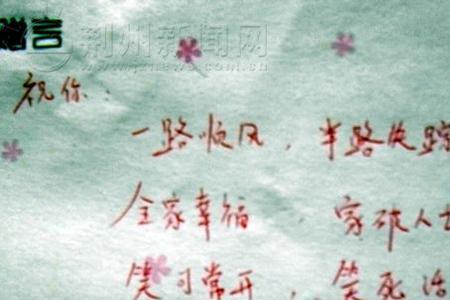 赠言
荆州新闻网
祝你
一路顺风，半路失踪
全家幸福 家破人亡
笑口常开，笑死